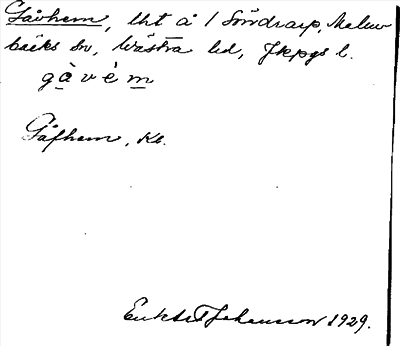 Gåvhem, lht å 1 Söndrarp, Malm-
bäcks sn, Västra hd, Jkpgs l.
gàvèm
Gåfhem, Kb.
Johansson 1929.